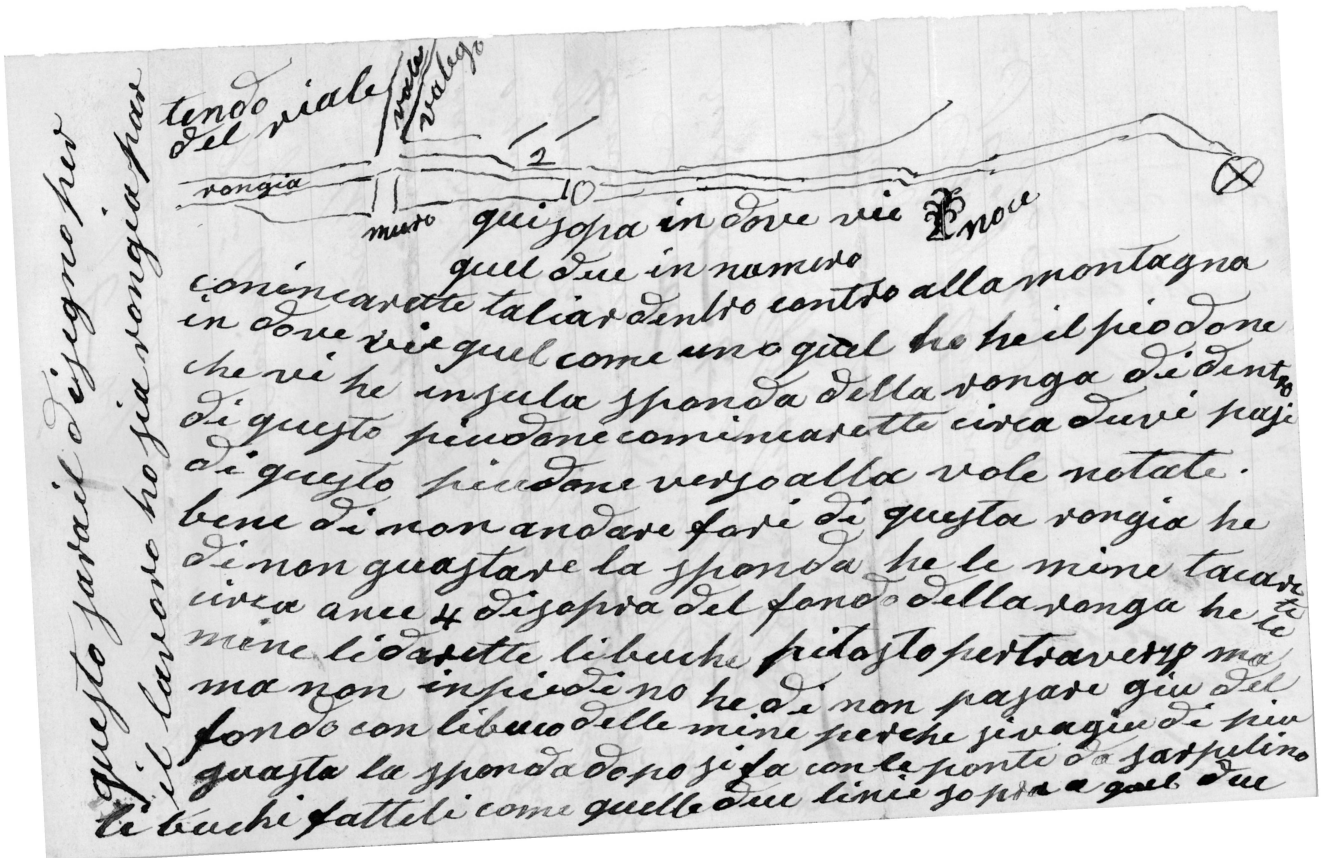 questo sarail disegno per
il lavoro ho sia rongia par
tendo
del viale
vale
valego
rongia
2
10
muro
qui sopa in dove vie
noce
quel due in numero
comincarette taliar dentro contro alla montagna
in dove vie quel come uno giel ho he il piodone
che vi he insula sponda della ronga di dentro
di questo piudone comincarette circa duvi pasi
di questo piudone verso alla vole notate.
bene di non andare fori di questa rongia he
di non guastare la sponda he le mine tacarete
circa once 4 disopra del fondo della ronga he le
mine lidarette libuche pitosto pertraverso ma
ma non inpiedi no he di non pasare giu del
fondo con libuco delle mine perche sivagiu di piu
guasta la sponda dopo si fa con le ponte da sarpelino
li buchi fatteli come quelle due linie sopra a quel due